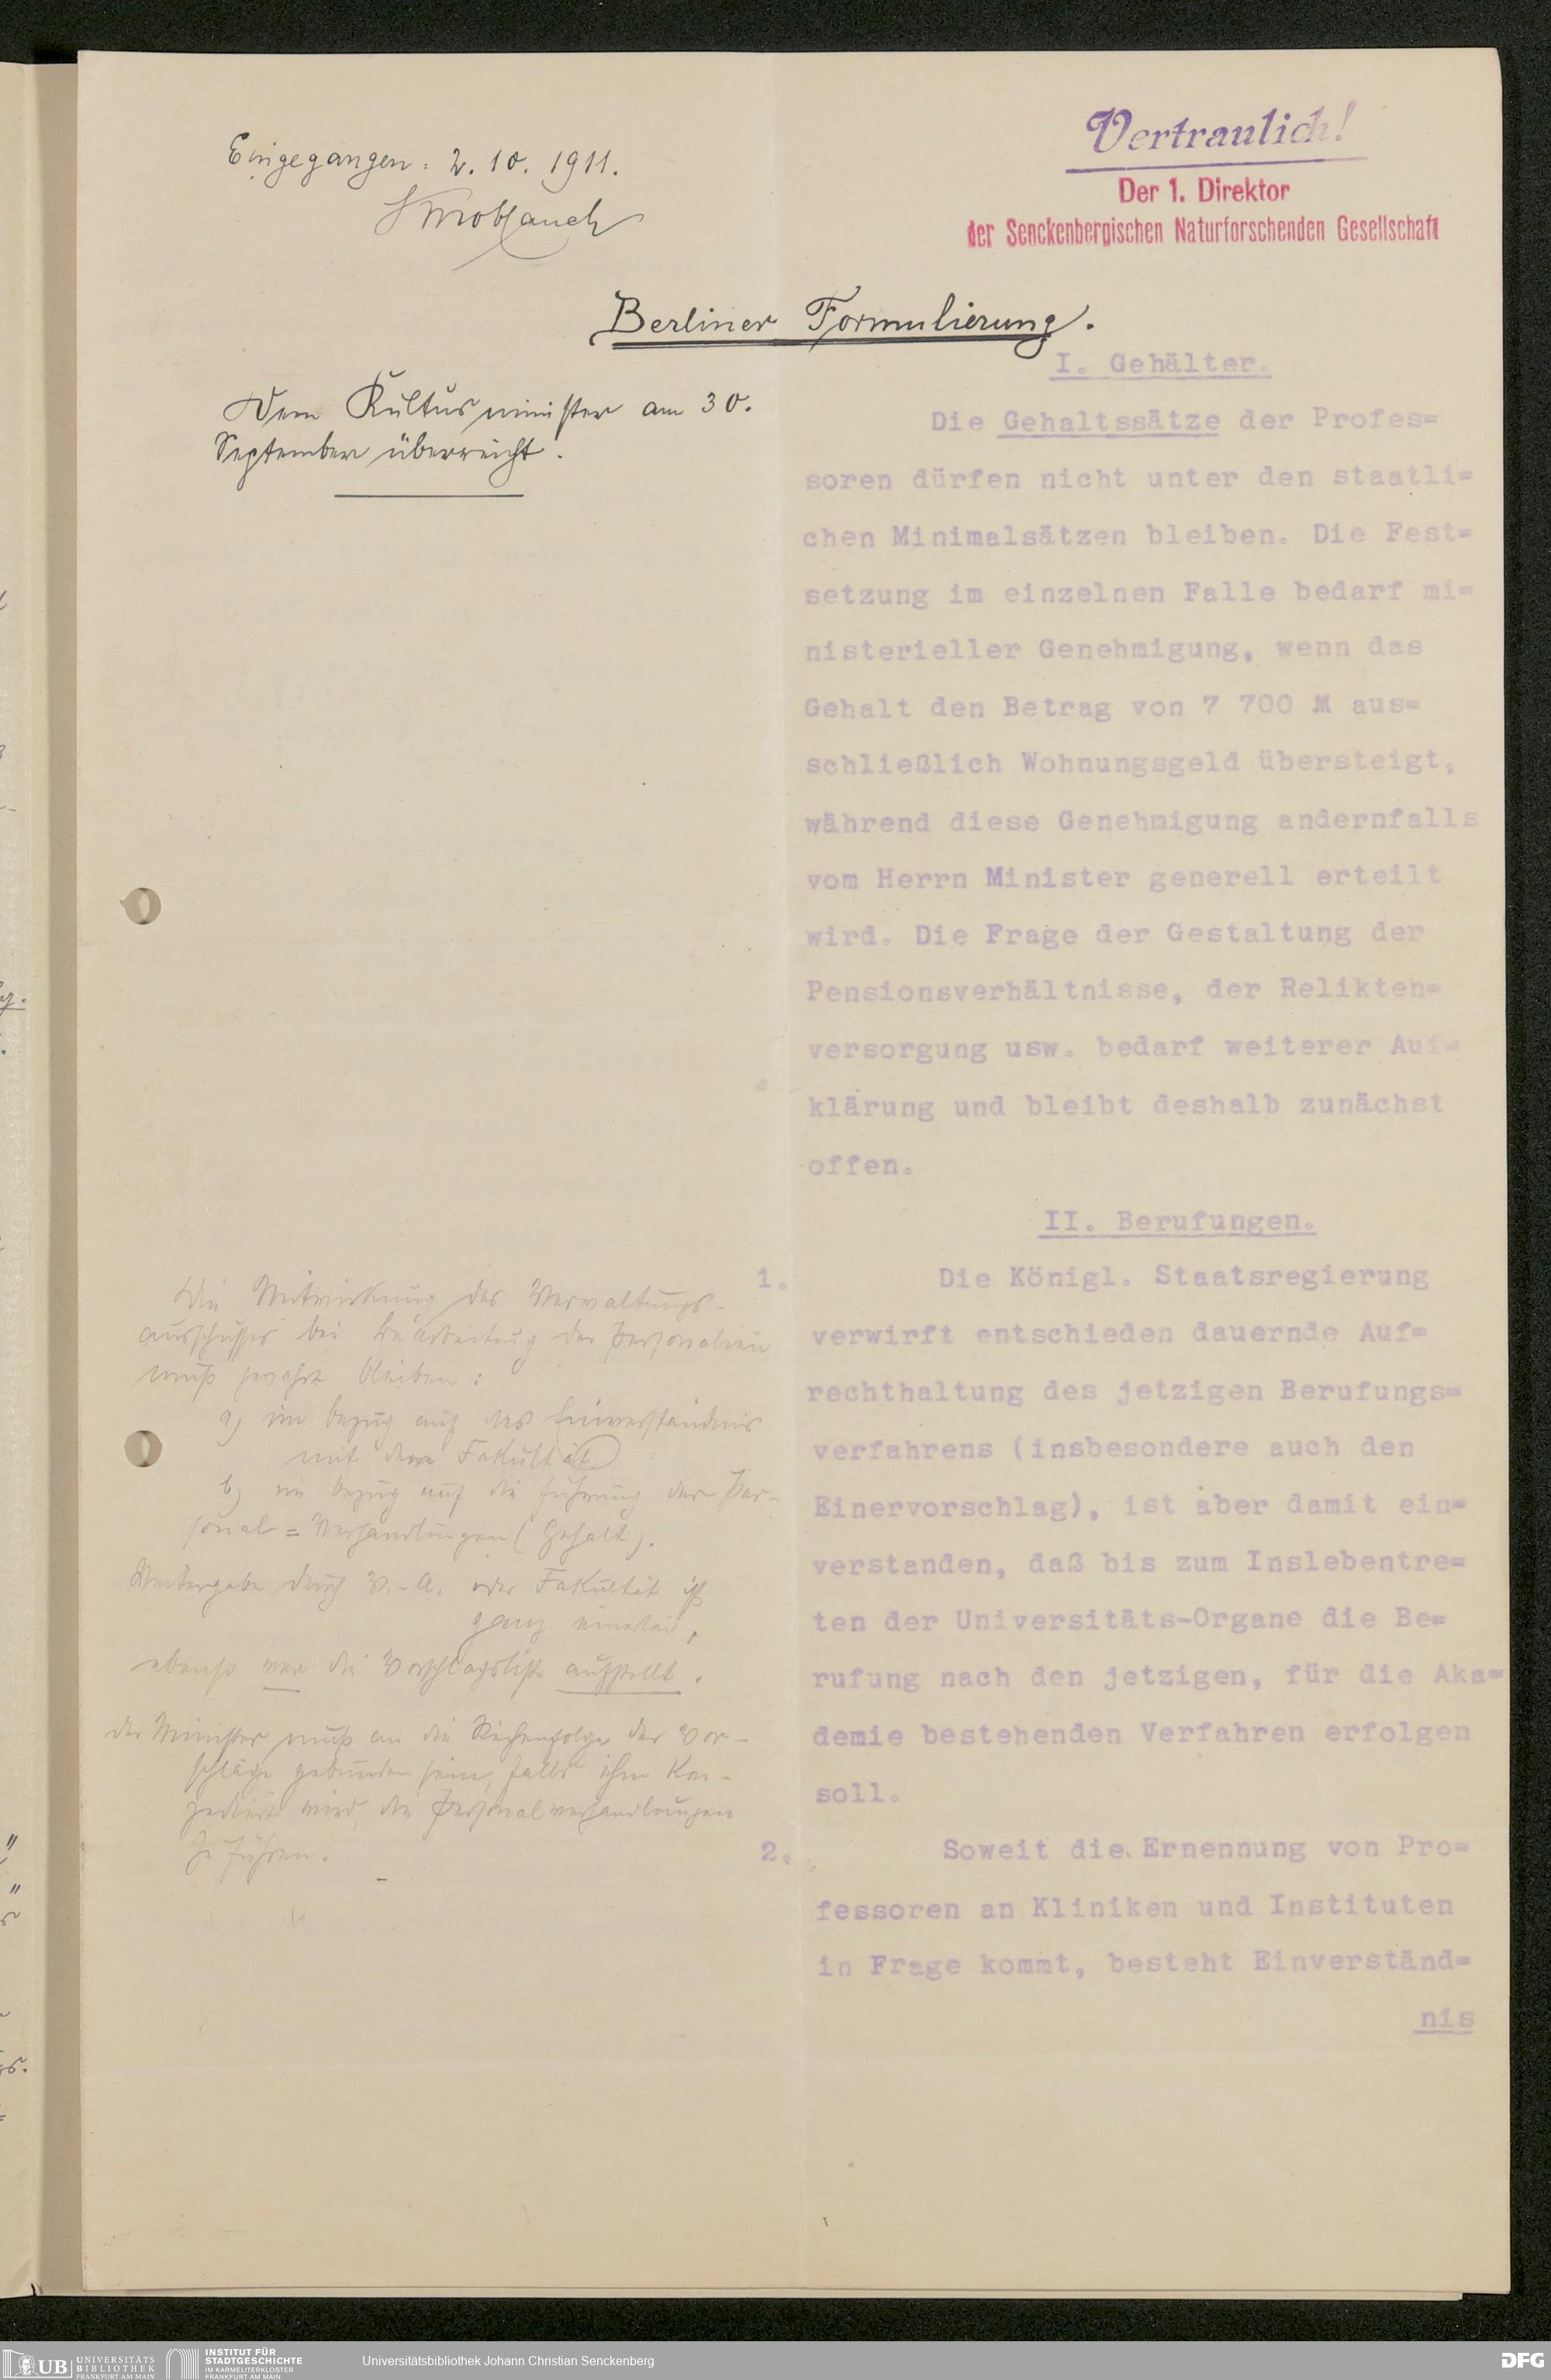 Eingegangen: 2. 10. 1911.
Knoblauch
Vertraulich!
Der 1. Direktor
der Senckenbergischen Naturforschenden Gesellschaft
Berliner Formulierung.
Dem Kultusminister am 30.
September überreicht.
I. Gehälter.
Die Gehaltssätze der Profes=
soren dürfen nicht unter den staatli=
chen Minimalsätzen bleiben. Die Fest=
setzung im einzelnen Falle bedarf mi=
nisterieller Genehmigung, wenn das
Gehalt den Betrag von 7 700 M aus=
schließlich Wohnungsgeld übersteigt,
während diese Genehmigung andernfalls
vom Herrn Minister generell erteilt
wird. Die Frage der Gestaltung der
Pensionsverhältnisse, der Relikten=
versorgung usw. bedarf weiterer Auf=
klärung und bleibt deshalb zunächst
offen.
II. Berufungen.
1. Die Königl. Staatsregierung
verwirft entschieden dauernde Auf=
rechthaltung des jetzigen Berufungs=
verfahrens (insbesondere auch den
Einervorschlag), ist aber damit ein=
verstanden, daß bis zum Inslebentre=
ten der Universitäts-Organe die Be=
rufung nach den jetzigen, für die Aka=
demie bestehenden Verfahren erfolgen
soll.
2. Soweit die Ernennung von Pro=
fessoren an Kliniken und Instituten
in Frage kommt, besteht Einverständ=
nis
Die Mitwirkung des Verwaltungs-
ausschusses bei Bearbeitung der Personalien
muß gewahrt bleiben:
a) in bezug auf das Einverständnis
mit der Fakultät
b) in bezug auf die Führung der Per-
sonal=Verhandlungen (Gehalt).
Weitergabe durch V.-A. oder Fakultät ist
ganz einerlei,
ebenso wer die Vorschlagsliste aufstellt.
der Minister muß an die Reihenfolge der Vor-
schläge gebunden sein, falls ihm
wird, die Personalverhandlungen
zu führen.
UB UNIVERSITÄTS
BIBLIOTHEK
FRANKFURT AM MAIN
INSTITUT FÜR
STADTGESCHICHTE
IM KARMELITERKLOSTER
FRANKFURT AM MAIN
Universitätsbibliothek Johann Christian Senckenberg
DFG